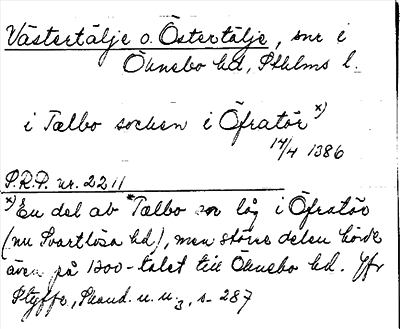 Västertälje o. Östertälje, snr i
Öknebo hd, Sthlms l.
i Tælbo socken i Öfratör x)
14/4 1386
P.R.P. nr. 2211
x) En del av *Tælbo sn låg i Öfratör
(nu Svartlösa hd), men större delen hörde
även på 1200-talet till Öknebo hd. Jfr
Styffe, Skand. u. u.3, s. 287